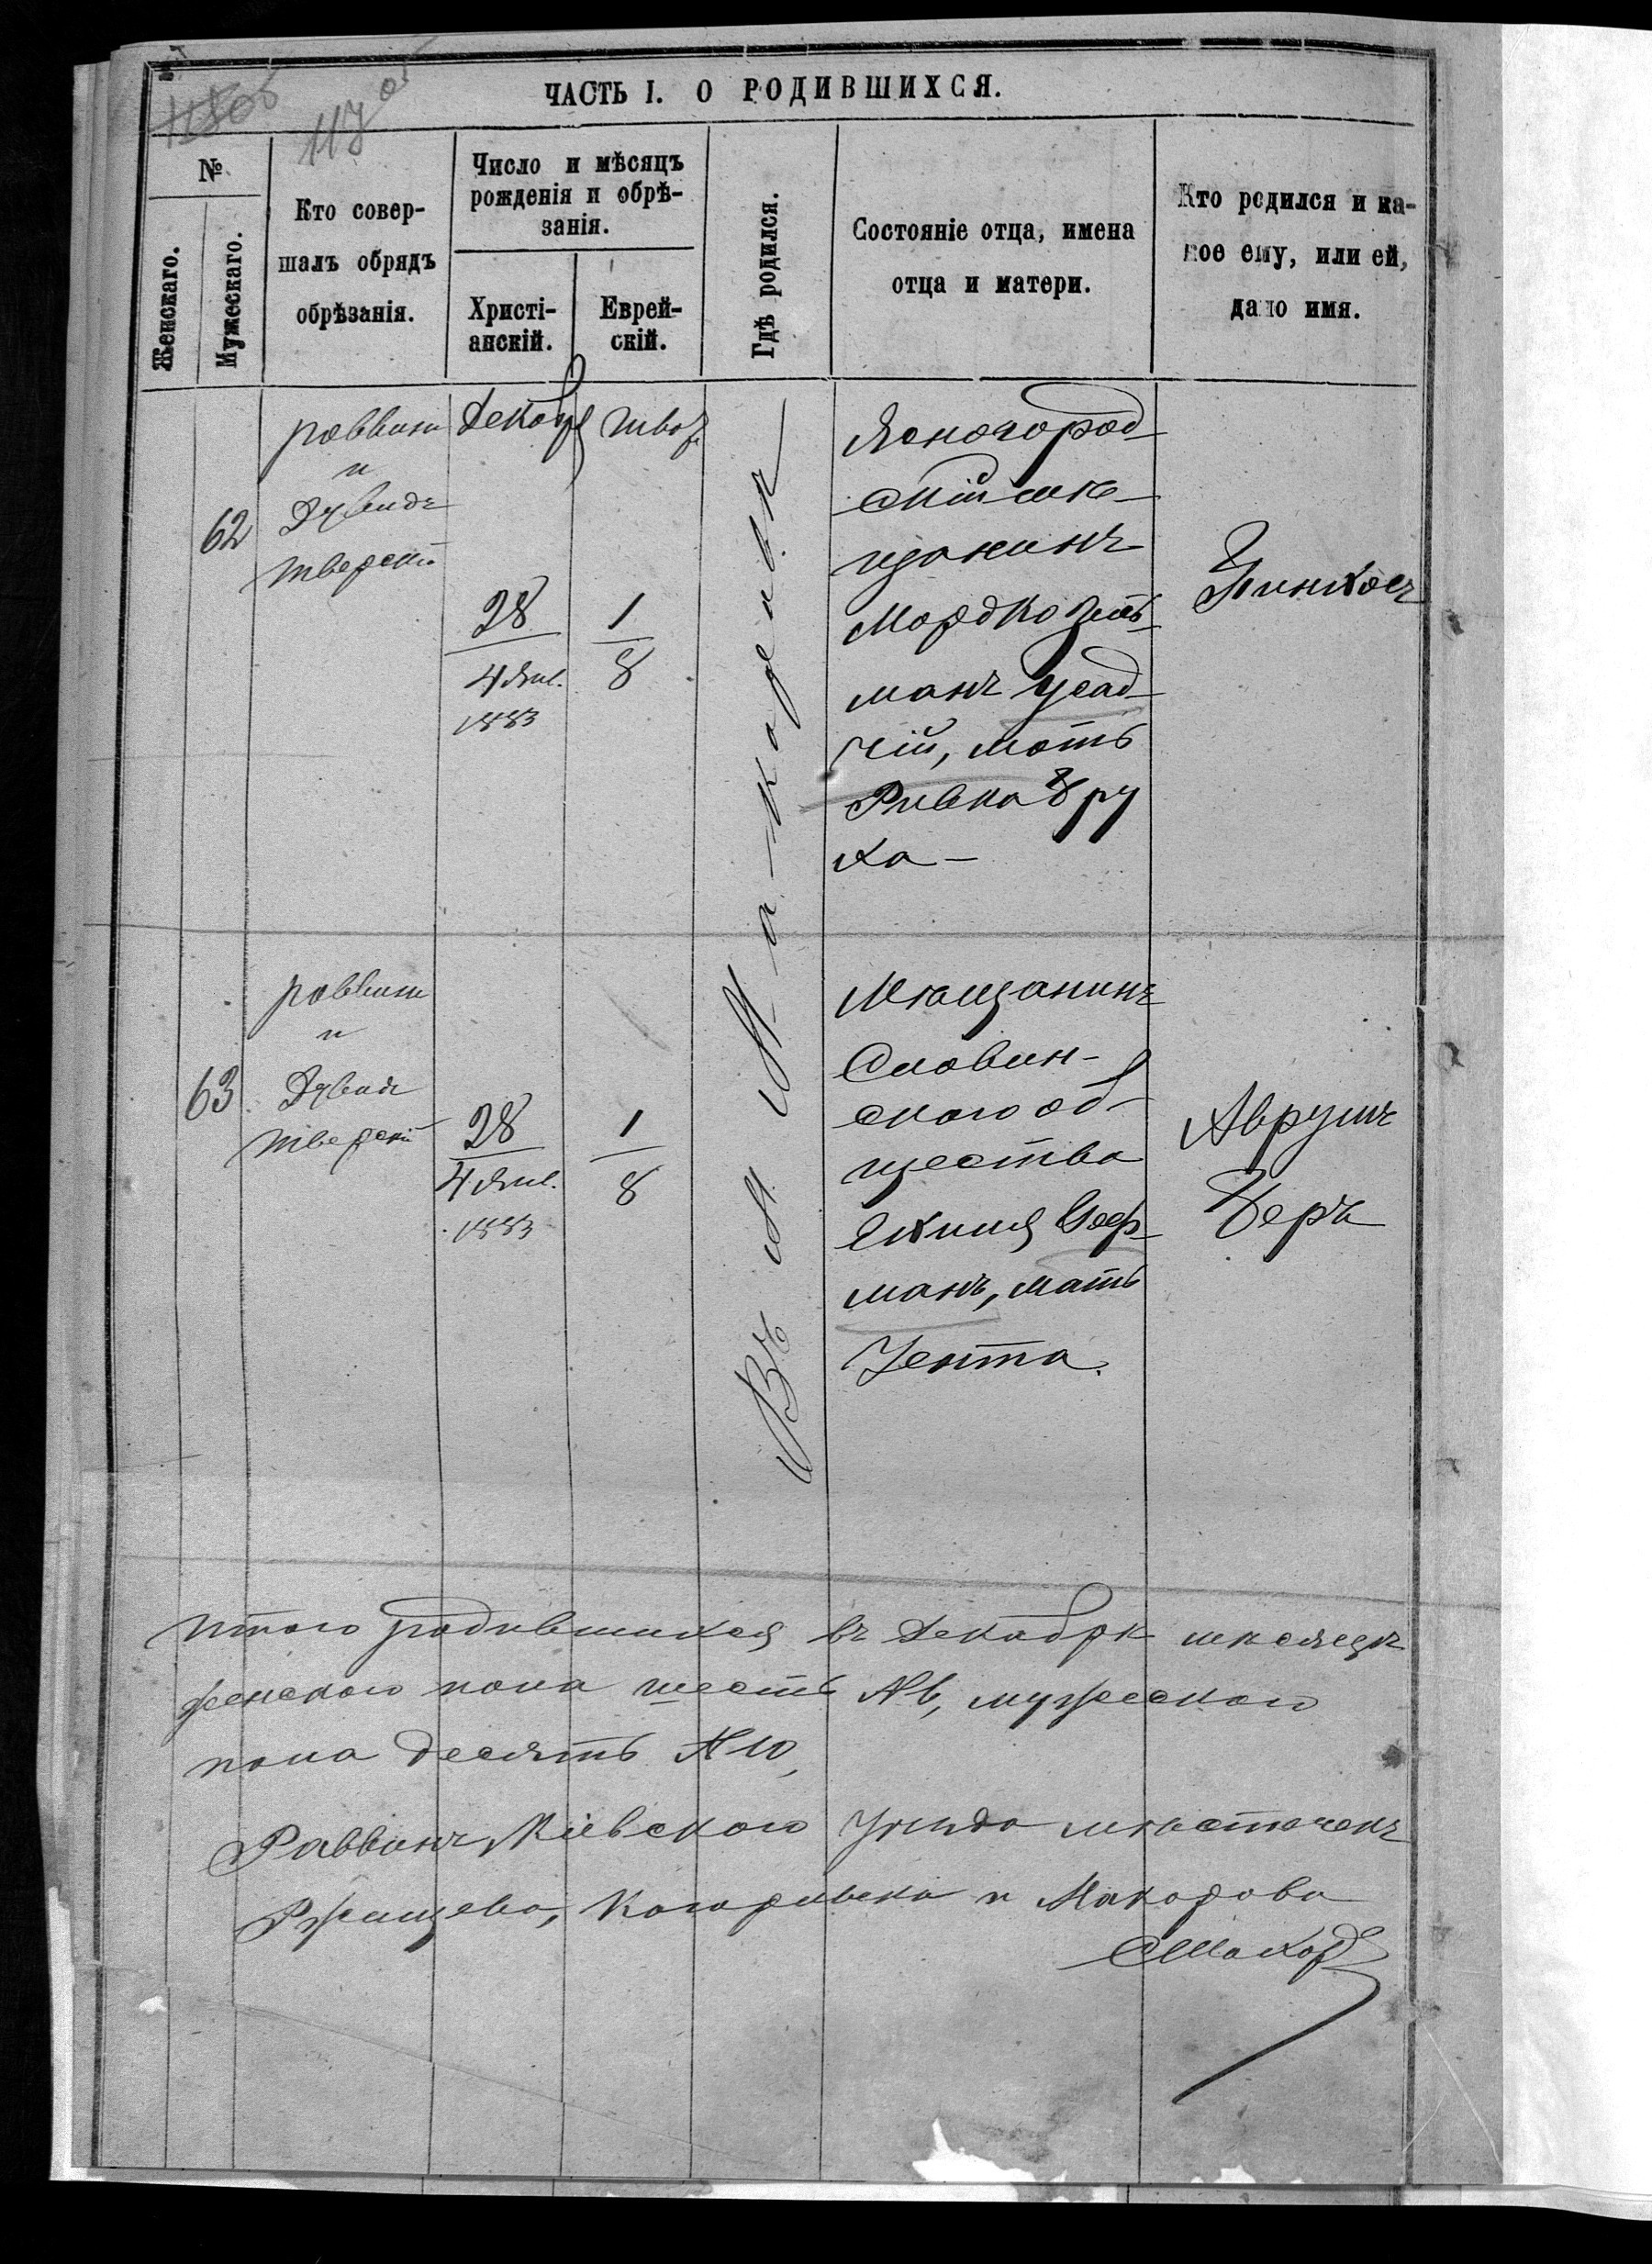 117 об
ЧАСТЬ I. О РОДИВШИХСЯ.
№
Женскаго.
Мужескаго.
Кто совер-
шалъ обрядъ
обрѣзанія.
Число и мѣсяцъ
рожденія и обрѣ-
занія.
Христі-
анскій.
Еврей-
скій.
Гдѣ родился.
Состояніе отца, имена
отца и матери.
Кто родился и ка-
кое ему, или ей,
дано имя.
62
раввин
и
Дувидъ
Тверскій
Декабря
28
4 Янв.
1883
1
8
Въ М. Макаровѣ
Ясногород-
скій мѣ-
щанинъ
Мордко
манъ Усад-
чій, мать
Ривка Бру
ха -
Пинхос
63
раввин
и
Дувидъ
Тверскій
28
4 Янв.
1883
1
8
Мѣщанинъ
Словин-
скаго об-
щества
Гоф-
манъ, мать
Ента.
Аврумъ
Беръ
Итого родившихся въ Декабрѣ мѣсяцѣ
женскаго пола шесть №6, мужескаго
пола десять №10,
Раввинъ Кіевскаго Уѣзда мѣстечекъ
Ржищева, Кагарлыка и Макарова